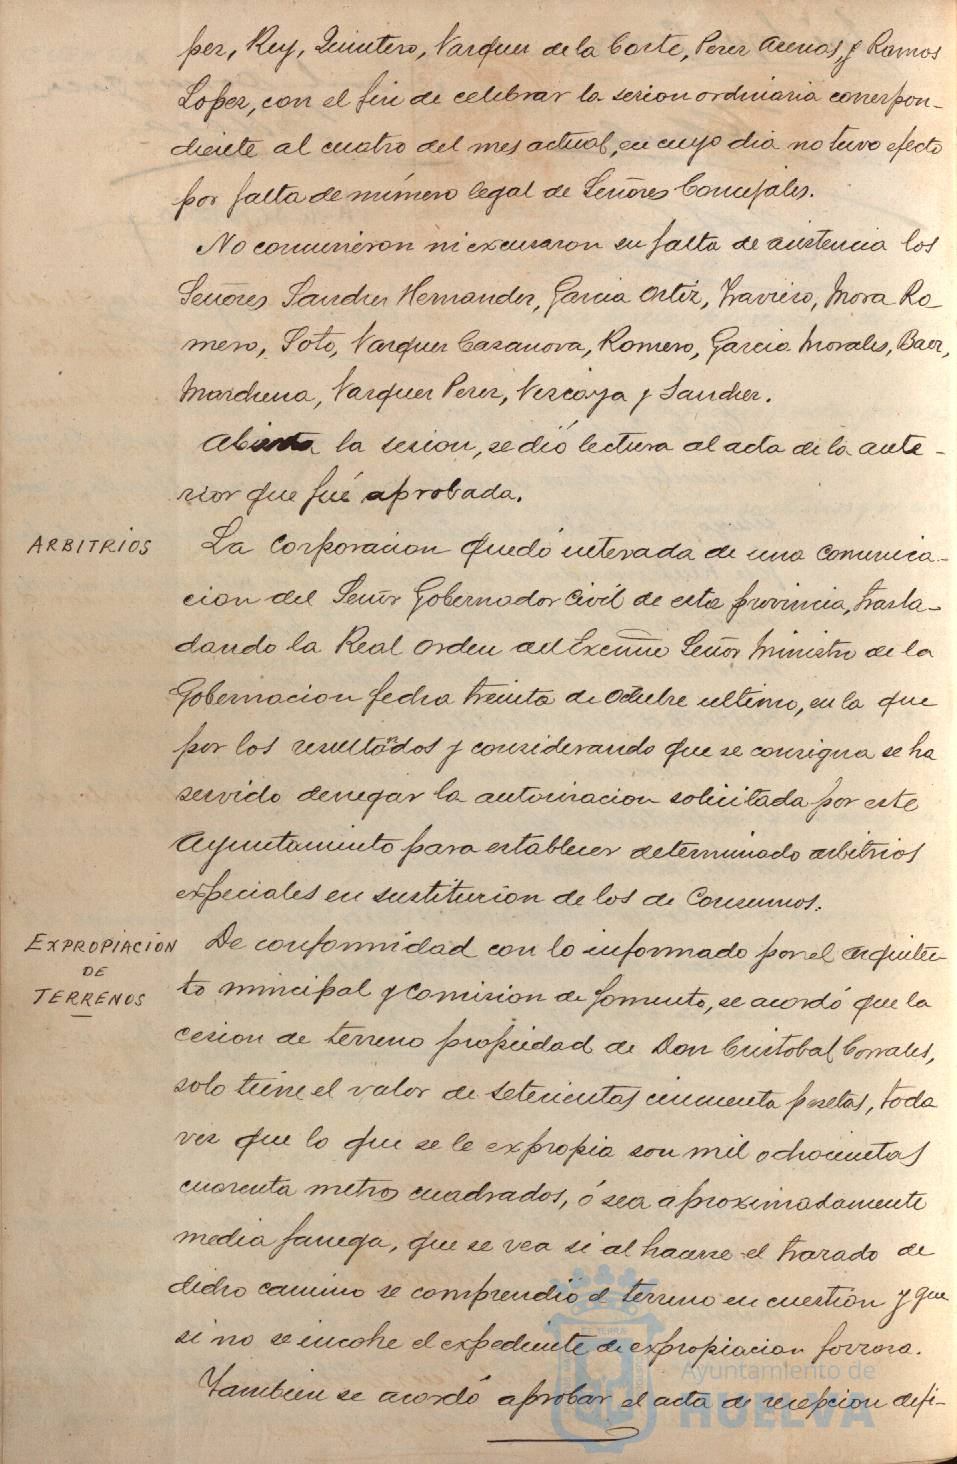 pez, Rey, Quintero, Vazquez de la Corte, Perez Arenas, y Ramos
Lopez, con el fin de celebrar la sesion ordinaria correspon-
diente al cuatro del mes actual, en cuyo dia no tuvo efecto
por falta de número legal de Señores Concejales.
No concurrieron ni excusaron su falta de asistencia los
Señores Sanchez Hernandez, Garcia Ortiz, Travieso, Mora Ro
mero, Soto, Vazquez Casanova, Romero, Garcia Morales, Baez,
Marchena, Vazquez Perez, Vizcaya y Sanchez.
Abierta la sesion, se dió lectura al acta de la ante-
rior que fué aprobada.
ARBITRIOS
La Corporacion quedó enterada de una comunica-
cion del Señor Gobernador Civil de esta provincia, trasla-
dando la Real Orden del Excmo Señor Ministro de la
Gobernacion fecha treinta de Octubre ultimo, en la que
por los resultandos y considerando que se consigna se ha
servido denegar la autorizacion solicitada por este
Ayuntamiento para establecer determinado arbitrios
especiales en sustitucion de los de Consumos.
EXPROPIACIÓN
DE
TERRENOS
De conformidad con lo informado por el arquitec-
to municipal y Comision de fomento, se acordó que la
cesion de terreno propiedad de Don Cristobal Corrales,
solo tiene el valor de setecientas cincuenta pesetas, toda
vez que lo que se le expropia son mil ochocientas
cuarenta metros cuadrados, ó sea aproximadamente
media fanega, que se vea si al hacerse el trazado de
dicho camino se comprendió el terreno en cuestión y que
si no se incohe el expediente de expropiacion forzosa.
Tambien se acordó aprobar el acta de recepcion defi-
Ayuntamiento de
HUELVA